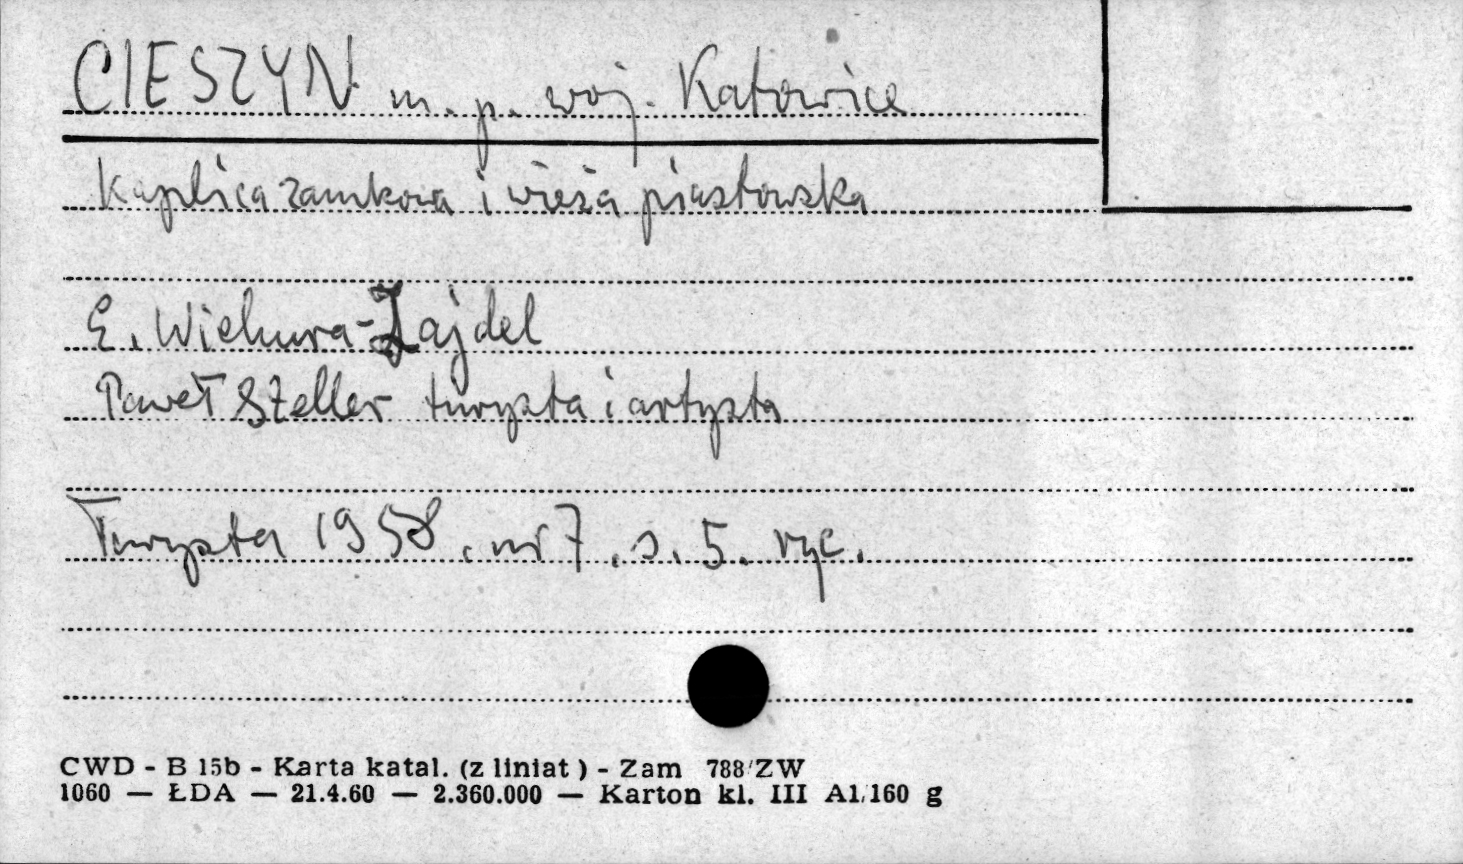 CIESZYN m. p. woj. Katowice
Kaplica zamkowa i wieża piastowska
E. Wichura-Zajdel
Paweł Steller turysta i artysta
Turysta 1958. nr 7. s. 5. ryc.
CWD - B 15b - Karta katal. (z liniat) - Zam 788/ZW
1060 — ŁDA — 21.4.60 — 2.360.000 — Karton kl. III A1/160 g